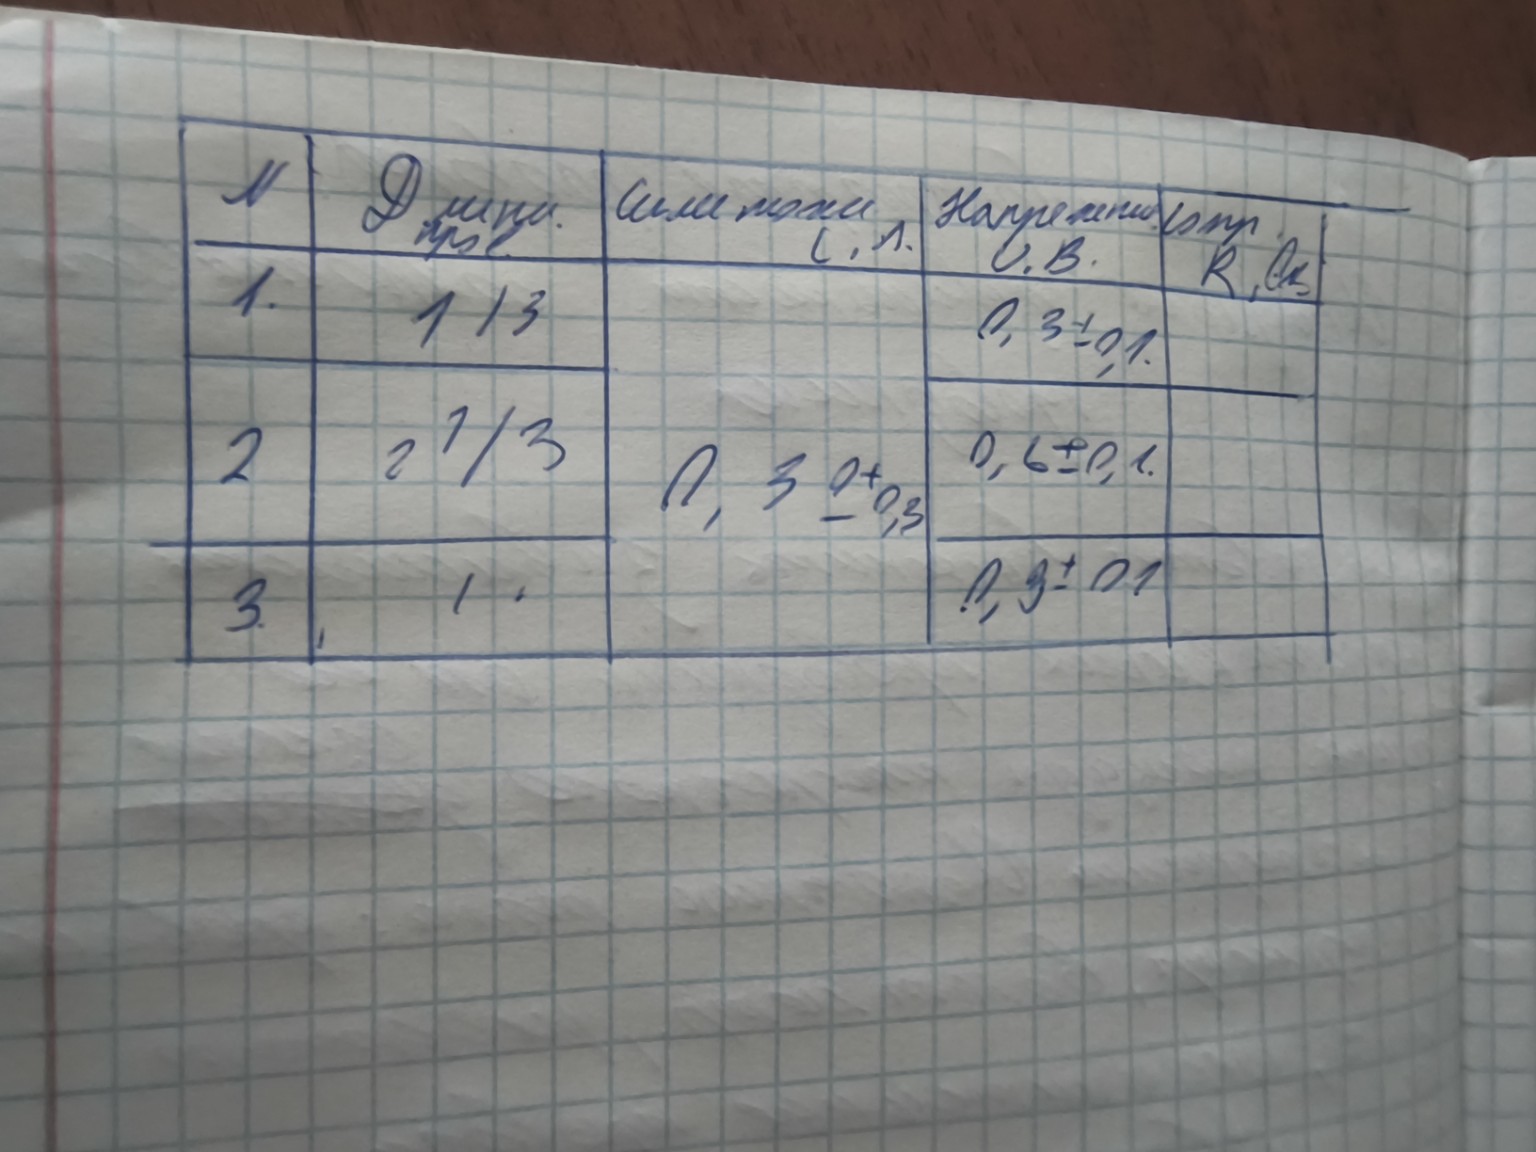 N Длина Сила тока Напряжение Сопр.
пров. I, А. U, В. R, Ом
1. 1/3 0,3±0,1.
2 2 1/3 0,30±0,3 0,6±0,1.
3. 1. 0,9±01